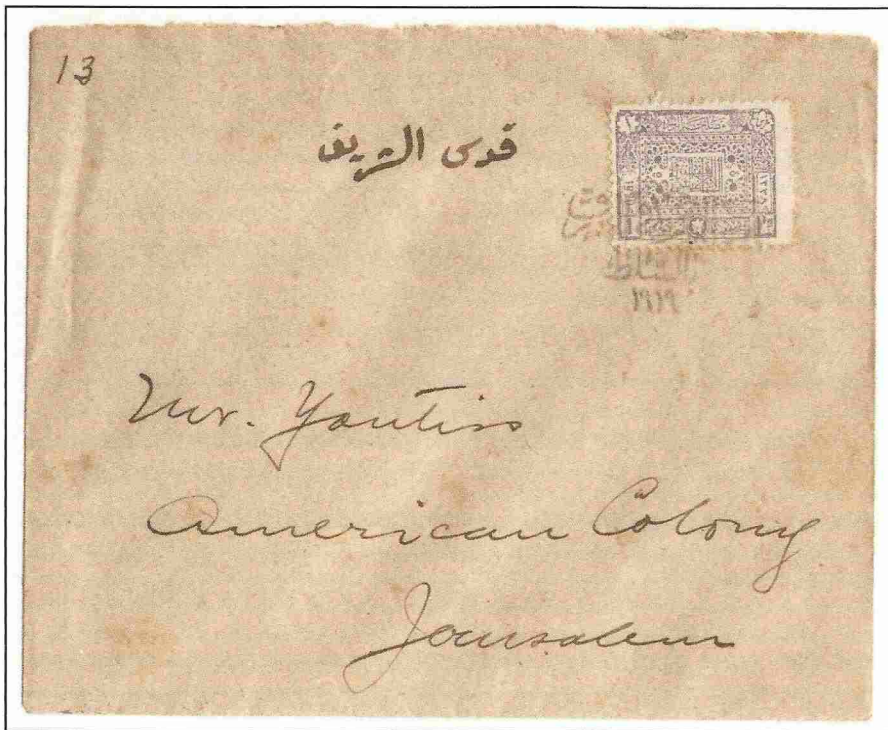 13
قدس الشريف
١٩١٩
Mr. Yantiss
American Colony
Jerusalem